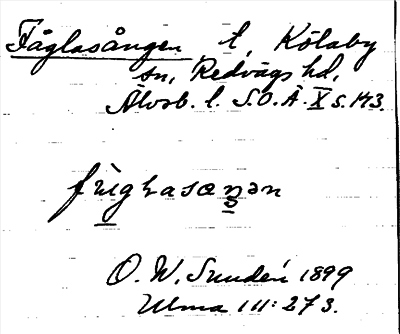 Fåglasången t, Kölaby
sn, Redvägs hd,
Älvsb. l. S.O.Ä. X s. 143.
O. W. Sundén 1899
Ulma 111:273.